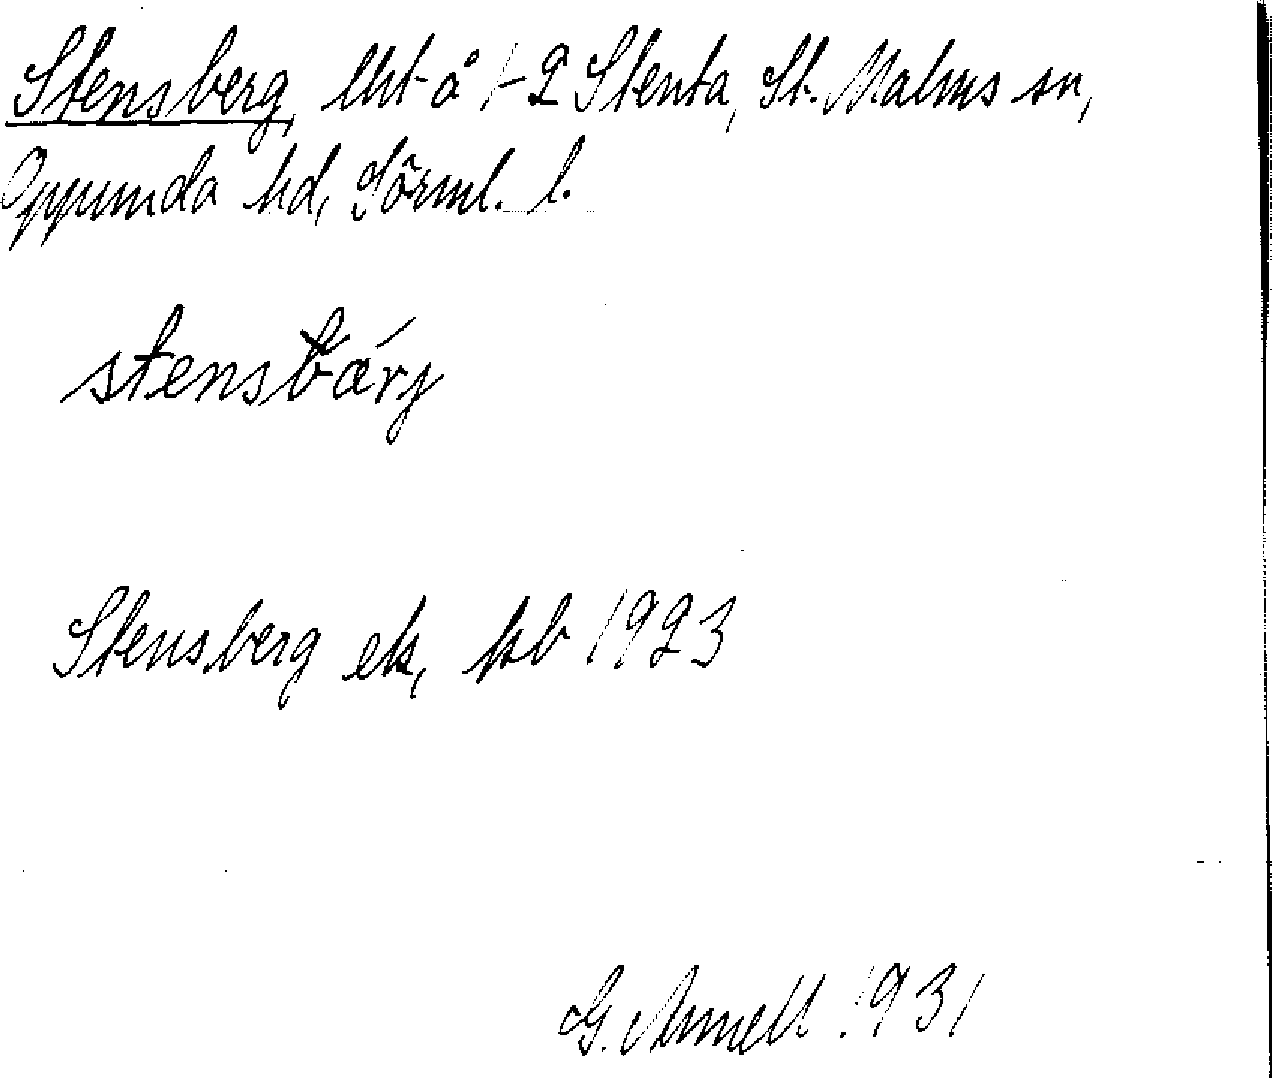 Stensberg, lht å 1-2 Stenta, St. Malms sn,
Oppunda hd, Sörml. l.
stensbärj
Stensberg ek, kb 1923
G. Annell 1931